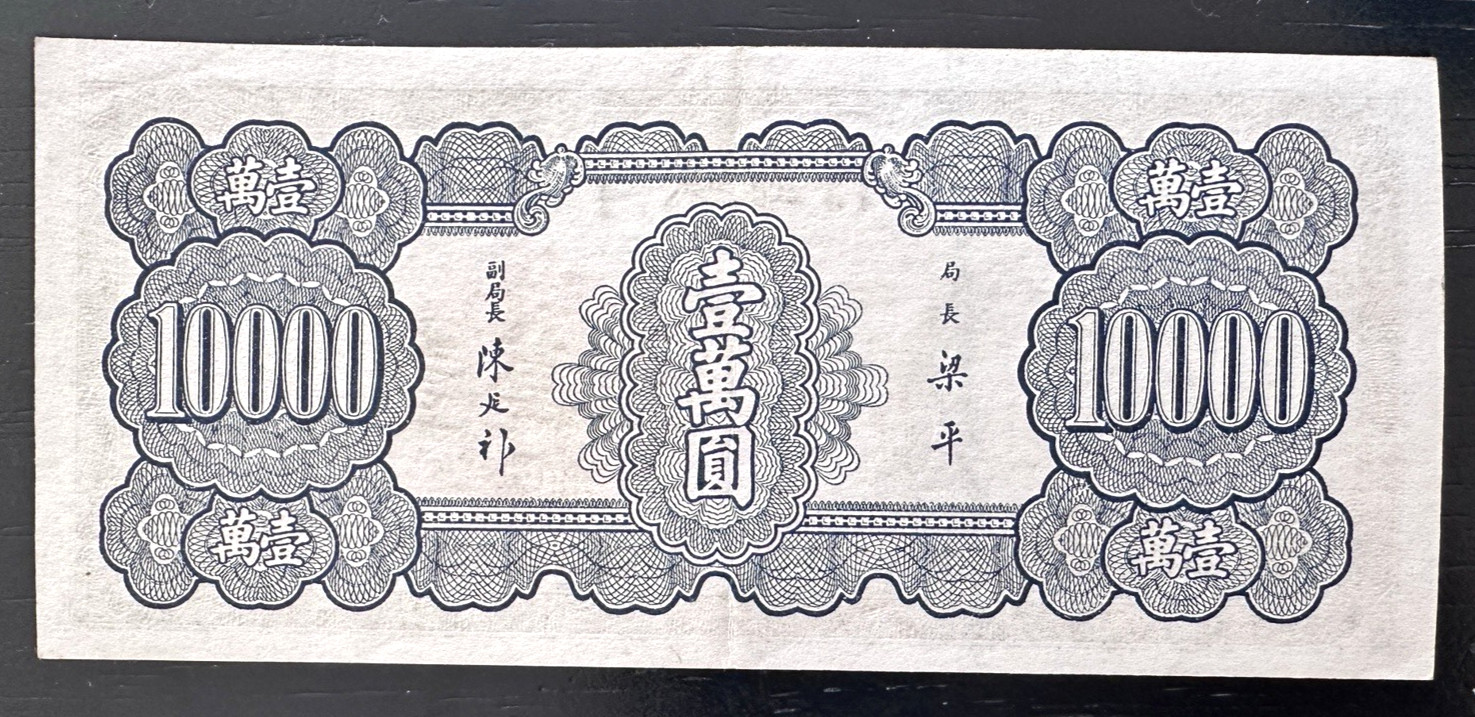 壹萬
壹萬
10000
10000
壹萬圓
局長
梁平
副局長
陳
壹萬
壹萬